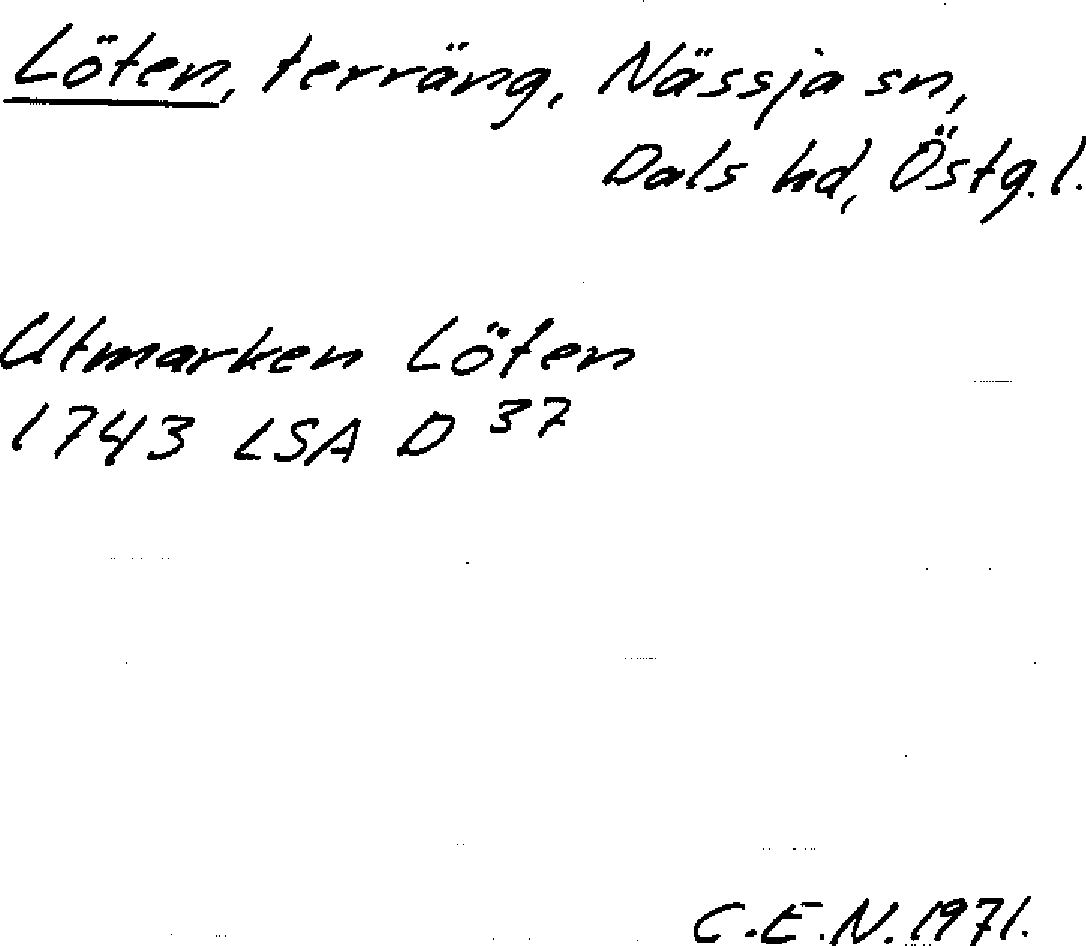 Löten, terräng, Nässja sn,
Dals hd, Östg.l.
Utmarken Löten
1743 LSA D 37
C.E.N. 1971.